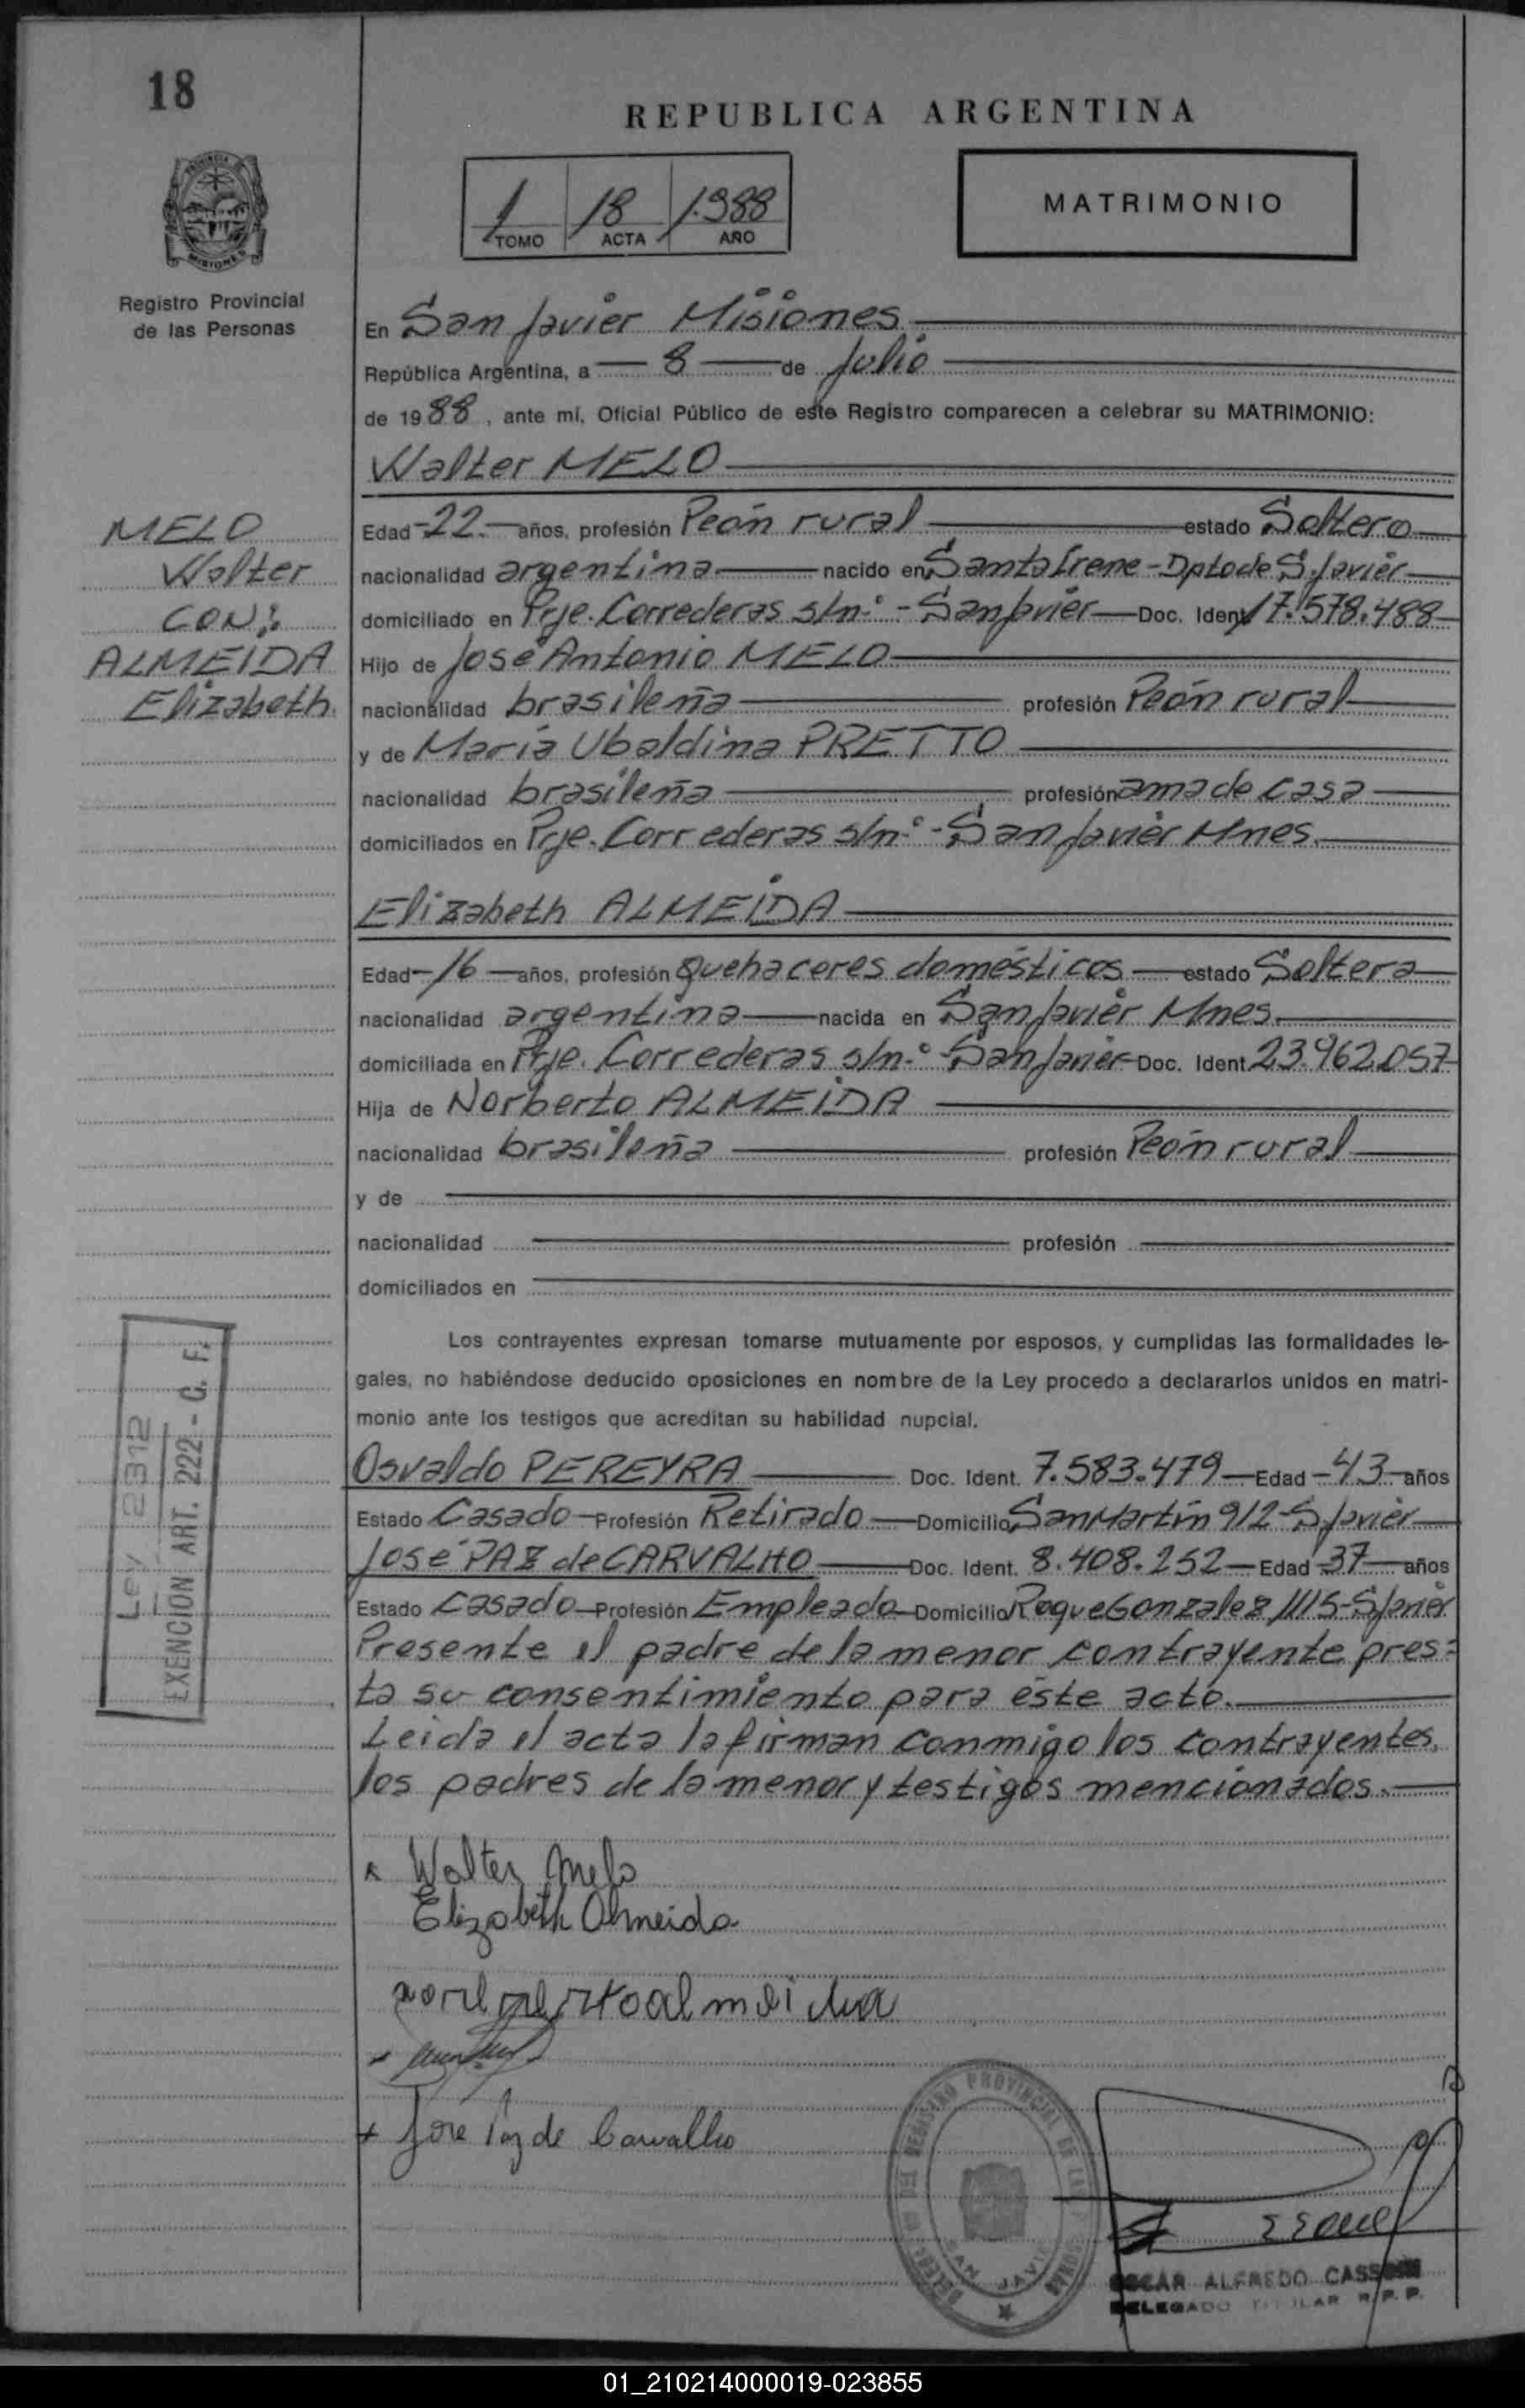 18
REPUBLICA ARGENTINA
1 18 1.988
TOMO ACTA AÑO
MATRIMONIO
PROVINCIA DE
MISIONES
Registro Provincial
de las Personas
En San Javier Misiones
República Argentina, a 8 de Julio
de 1988, ante mí, Oficial Público de este Registro comparecen a celebrar su MATRIMONIO:
Walter MELO
MELO
Walter
CON:
ALMEIDA
Elizabeth.
Edad 22.- años, profesión Peón rural estado Soltero
nacionalidad argentina nacido en Santa Irene-Dpto de S. Javier
domiciliado en Prje. Correderas s/nº - San Javier Doc. Ident 17.578.488
Hijo de José Antonio MELO
nacionalidad brasileña profesión Peón rural
y de María Ubaldina PRETTO
nacionalidad brasileña profesión ama de casa
domiciliados en Prje. Correderas s/nº - San Javier Mnes.
Elizabeth ALMEIDA
Edad 16 años, profesión Quehaceres domésticos estado Soltera
nacionalidad argentina nacida en San Javier Mnes.
domiciliada en Prje. Correderas s/nº - San Javier Doc. Ident 23.962.057
Hija de Norberto ALMEIDA
nacionalidad brasileña profesión Peón rural
y de
nacionalidad profesión
domiciliados en
Los contrayentes expresan tomarse mutuamente por esposos, y cumplidas las formalidades le-
gales, no habiéndose deducido oposiciones en nombre de la Ley procedo a declararlos unidos en matri-
monio ante los testigos que acreditan su habilidad nupcial.
Ley 2312
EXENCION ART. 222 - C. F.
Osvaldo PEREYRA Doc. Ident. 7.583.479 Edad 43 años
Estado Casado Profesión Retirado Domicilio San Martín 912-S Javier
José PAZ de CARVALHO Doc. Ident. 8.408.252 Edad 37 años
Estado Casado Profesión Empleado Domicilio Roque Gonzalez 1115-S Javier
Presente el padre de la menor contrayente pres=
ta su consentimiento para éste acto.
Leida el acta la firman conmigo los contrayentes,
los padres de la menor y testigos mencionados.
Walter Melo
Elizabeth Almeida
José Paz de Carvalho
REGISTRO PROVINCIAL DE LAS
SAN JAVIER
OSCAR ALFREDO
DELEGADO TITULAR R.P.P.
01_210214000019-023855